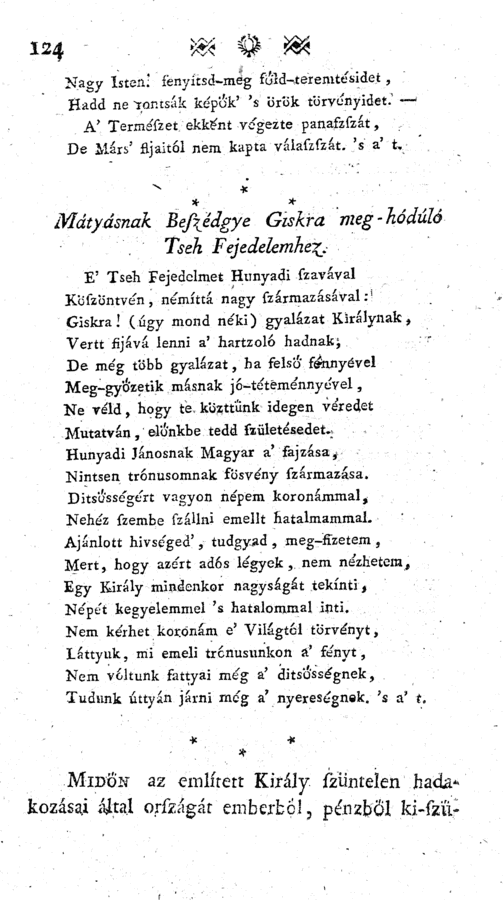 124
Nagy Isten! fenyítsd-még főld-teremtésidet,
Hadd ne rontsák képők' 's örök törvényidet. —
A' Terméſzet ekként végezte panaſzſzát,
De Márs' fijaitól nem kapta válaſzſzát. 's a' t.
* * *
Mátyásnak Beſzédgye Giskra meg-hódúló
Tseh Fejedelemhez.
E' Tseh Fejedelmet Hunyadi ſzavával
Köſzöntvén, némíttá nagy ſzármazásával:
Giskra! (úgy mond néki) gyalázat Királynak,
Vertt fijává lenni a' hartzoló hadnak;
De még több gyalázat, ha felső fénnyével
Meg-győzetik másnak jó-téteménnyével,
Ne véld, hogy te közttünk idegen véredet
Mutatván, előnkbe tedd ſzületésedet.
Hunyadi Jánosnak Magyar a' fajzása,
Nintsen trónusomnak fösvény ſzármazása.
Ditsősségért vagyon népem koronámmal,
Nehéz ſzembe ſzállni emellt hatalmammal.
Ajánlott hivséged', tudgyad, meg-fizetem,
Mert, hogy azért adós légyek, nem nézhetem,
Egy Király mindenkor nagyságát tekínti,
Népét kegyelemmel 's hatalommal inti.
Nem kérhet koronám e' Világtól törvényt,
Láttyuk, mi emeli trónusunkon a' fényt,
Nem vóltunk fattyai még a' ditsősségnek,
Tudunk úttyán járni még a' nyereségnek. 's a' t.
* * *
Midőn az említett Király ſzüntelen hada-
kozásai által orſzágát emberből, pénzből ki-ſzü-